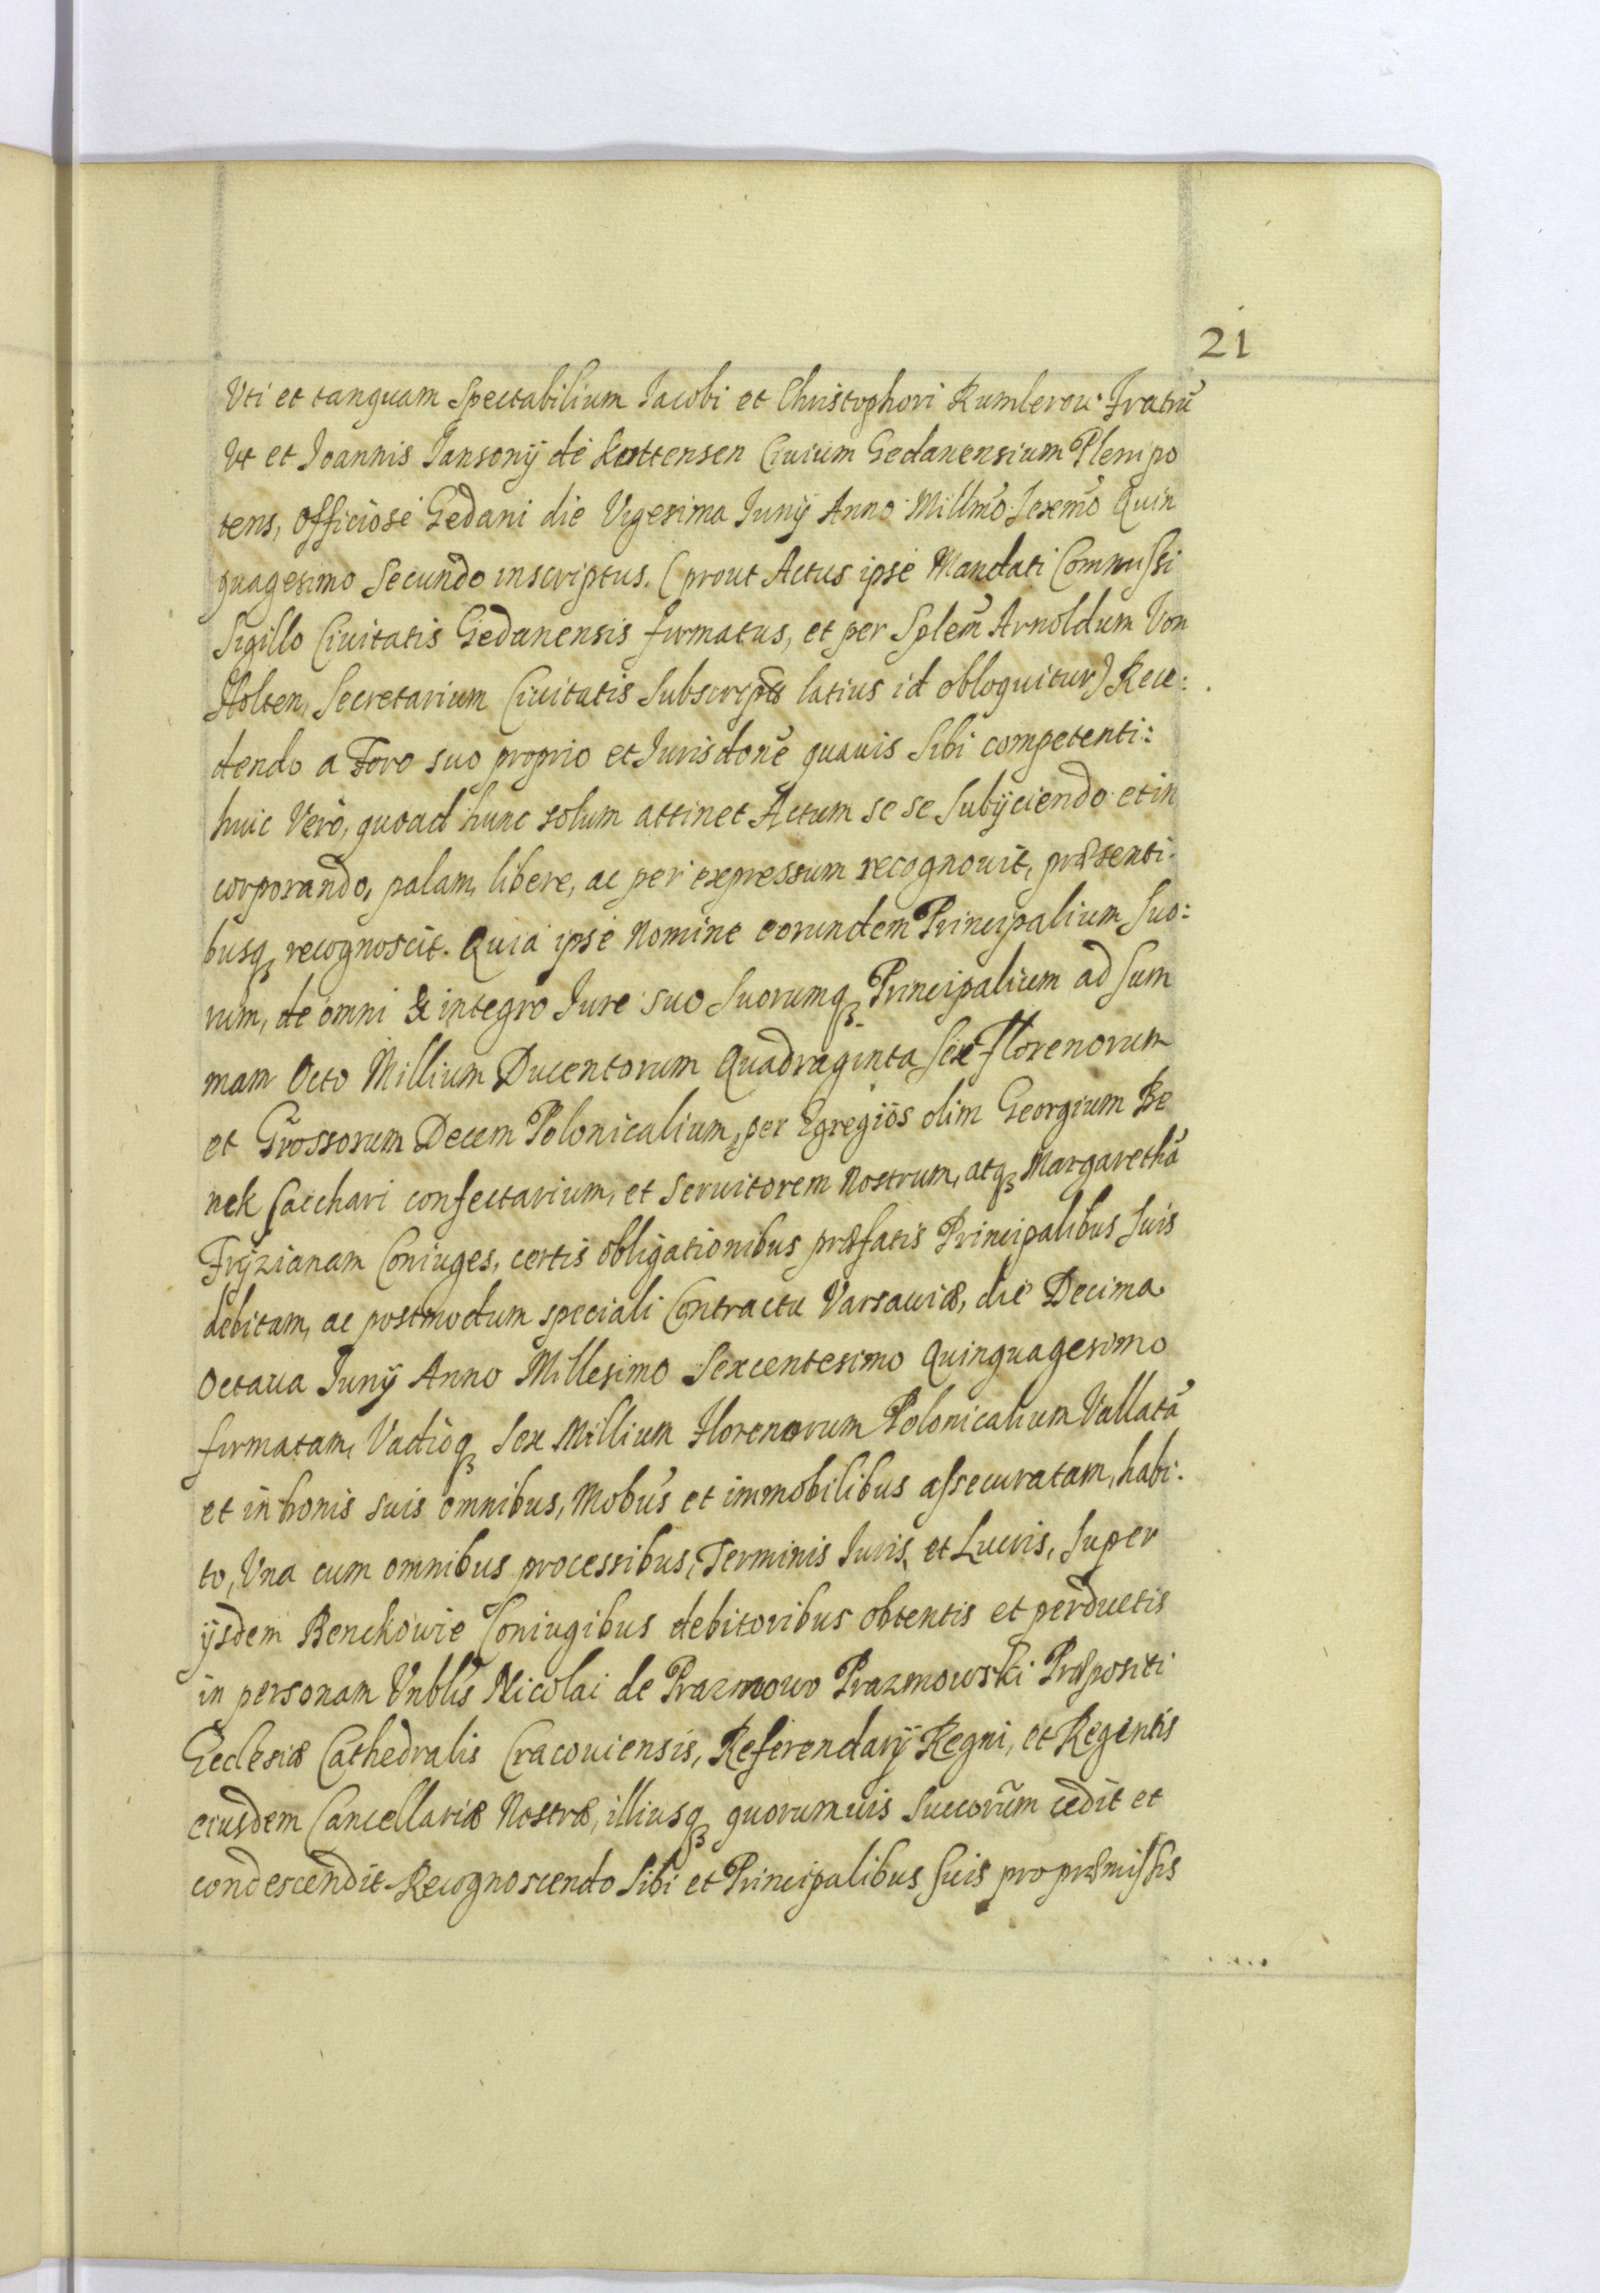 21
Uti et tanquam Spectabilium Iacobi et Christophori Rumlerou: Fratrũ
Ut et Joannis Jansonÿ de Kottensen Ciuium Gedanensium Plenipo
tens, officiose Gedani die Vigesima Junÿ Anno Millmõ Sexmõ Quin
quagesimo Secundo inscriptus. (prout Actus ipse Mandati Commissi
Sigillo Ciuitatis Gedanensis firmatus, et per Splem̃ Arnoldum Von
Holten, Secretarium Ciuitatis Subscript9 latius id obloquitur) Rece:
dendo a Foro suo proprio et Jurisdonẽ quauis Sibi competenti:
huic Vero, quoad hunc solum attinet Actum se se Subÿciendo et in
corporando, palam, libere, ac per expressum recognouit, præsenti
busqꝫ recognoscit. Quia ipse Nomine eorundem Principalium Suo:
rum, de omni & integro Jure suo Suorumqꝫ Principalium ad Sum
mam Octo Millium Ducentorum Quadraginta Sex Florenorum
et Grossorum Decem Polonicalium, per Egregios olim Georgium Be
nek Sacchari confectarium, et Seruitorem Nostrum, atqꝫ Margarethã
Fryzianam Coniuges, certis obligationibus præfatis Principalibus Suis
debitam, ac postmodum speciali Contractu Varsauiæ, die Decima
Octaua Junÿ Anno Millesimo Sexcentesimo Quinquagesimo
firmatam, Vadioqꝫ Sex Millium Florenorum Polonicalium Vallatã
et in bonis suis omnibus, Mobũs et immobilibus assecuratam, habi:
to, Una cum omnibus processibus, Terminis Iuris et Lucris, Super
ÿsdem Benckowie Coniugibus debitoribus obtentis et perductis
in personam Vnblis Nicolai de Prazmowo Prazmowski Præpositi
Ecclesiæ Cathedralis Cracouiensis, Referendarÿ Regni, et Regentis
eiusdem Cancellariæ Nostræ, illiusqꝫ quorumuis Succorum̃ cedit et
condescendit. Recognoscendo Sibi et Principalibus Suis pro præmissis